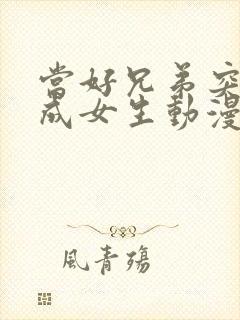 當好兄弟突
成女生動漫
風青殤